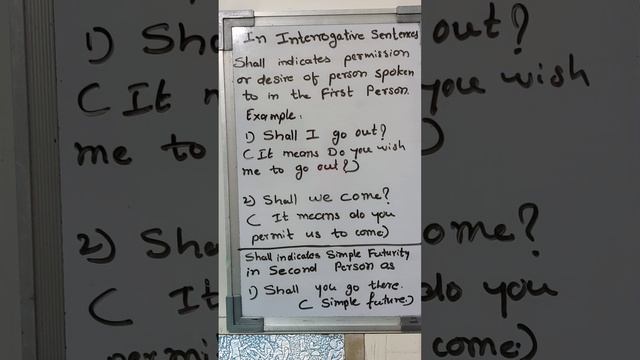 In Interrogative Sentences
Shall indicates permission
or desire of person spoken
to in the First Person.
Example.
1) Shall I go out?
( It means Do you wish
me to go out?)
2) Shall we come?
( It means do you
permit us to come)
Shall indicates Simple Futurity
in Second Person as
1) Shall you go there.
( Simple future.)